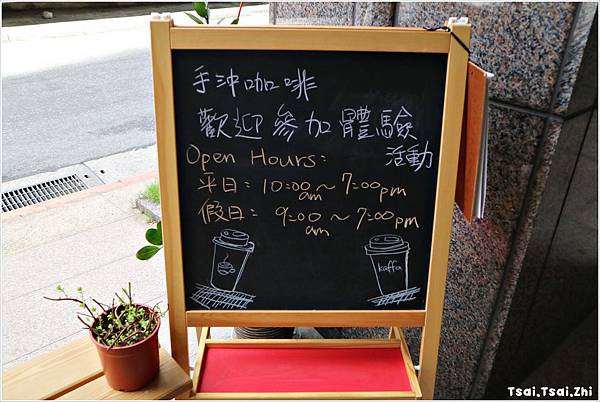 手沖咖啡
歡迎參加體驗
活動
Open Hours:
平日: 10:00am~7:00pm
假日: 9:00am~7:00pm
kaffa
Tsai.Tsai.Zhi